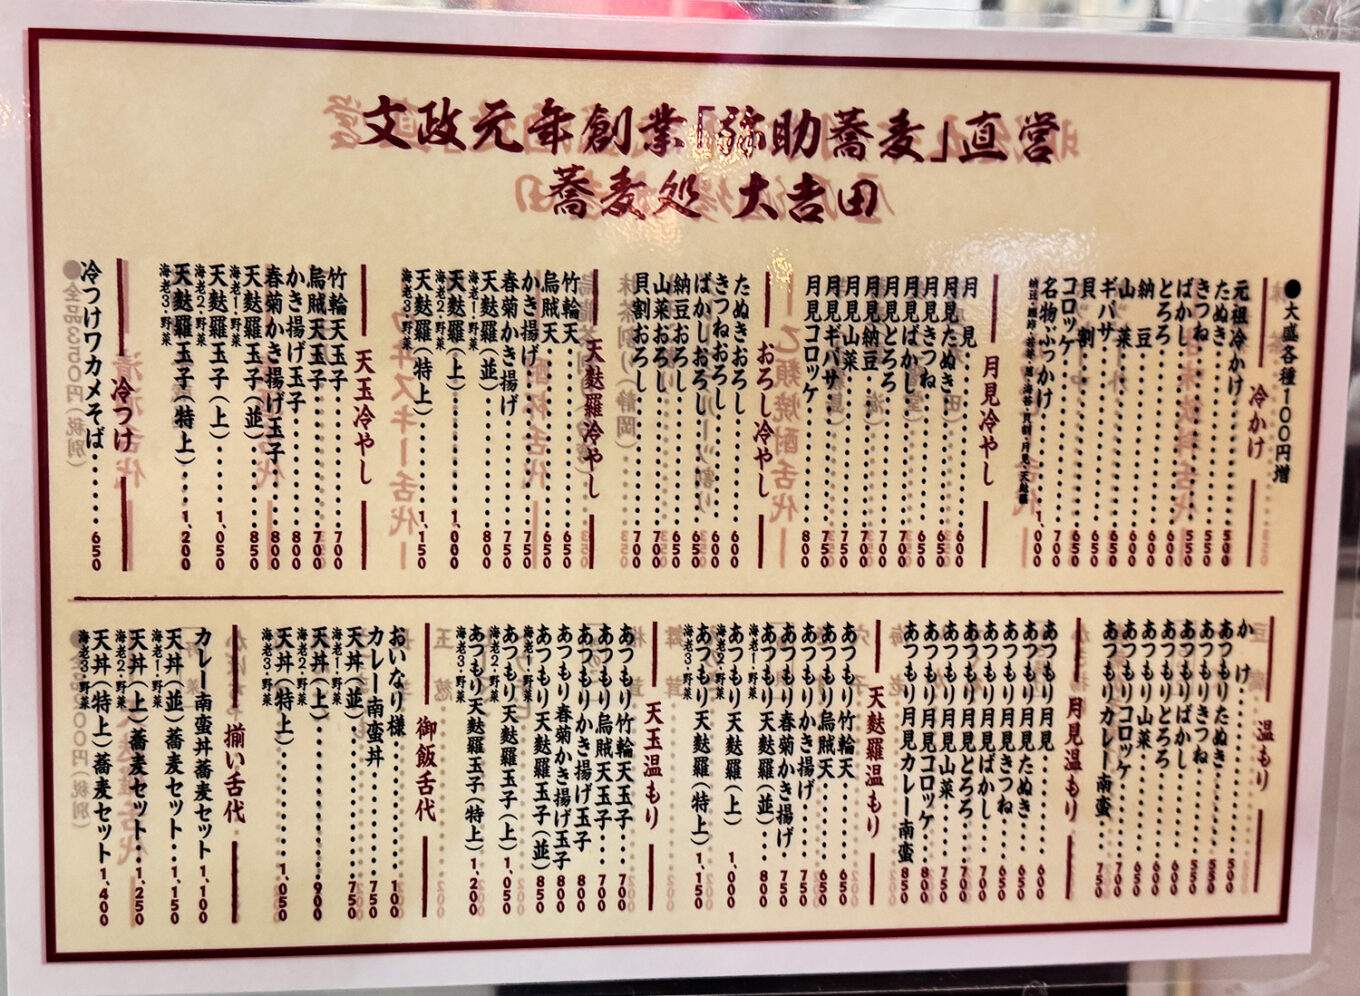 文政元年創業「弥助蕎麦」直営
蕎麦処 大吉田
●大盛各種100円増
冷かけ
元祖冷かけ 500
たぬき 550
きつね 550
ばかし 600
とろろ 600
納豆 600
山菜 650
ギバサ 650
貝割 650
コロッケ 700
名物ぶっかけ 1,000
月見冷やし
月見 600
月見たぬき 650
月見きつね 650
月見ばかし 700
月見とろろ 700
月見納豆 700
月見山菜 700
月見ギバサ 750
月見コロッケ 800
おろし冷やし
たぬきおろし 600
きつねおろし 600
ばかしおろし 650
納豆おろし 650
山菜おろし 700
貝割おろし 700
天麩羅冷やし
竹輪天 650
烏賊天 650
かき揚げ 750
春菊かき揚げ 750
天麩羅(並) 800
海老1・野菜
天麩羅(上) 1,000
海老2・野菜
天麩羅(特上) 1,150
海老3・野菜
天玉冷やし
竹輪天玉子 700
烏賊天玉子 700
かき揚げ玉子 800
春菊かき揚げ玉子 800
天麩羅玉子(並) 850
海老1・野菜
天麩羅玉子(上) 1,050
海老2・野菜
天麩羅玉子(特上) 1,200
海老3・野菜
冷つけ
冷つけワカメそば 650
温もり
かけ 500
あつもりたぬき 550
あつもりきつね 550
あつもりばかし 600
あつもりとろろ 600
あつもり山菜 650
あつもりコロッケ 700
あつもりカレー南蛮 750
月見温もり
あつもり月見 600
あつもり月見たぬき 650
あつもり月見きつね 650
あつもり月見ばかし 700
あつもり月見とろろ 700
あつもり月見山菜 750
あつもり月見コロッケ 800
あつもり月見カレー南蛮 850
天麩羅温もり
あつもり竹輪天 650
あつもり烏賊天 650
あつもりかき揚げ 750
あつもり春菊かき揚げ 750
あつもり天麩羅(並) 800
海老1・野菜
あつもり天麩羅(上) 1,000
海老2・野菜
あつもり天麩羅(特上) 1,150
海老3・野菜
天玉温もり
あつもり竹輪天玉子 700
あつもり烏賊天玉子 700
あつもりかき揚げ玉子 800
あつもり春菊かき揚げ玉子 800
あつもり天麩羅玉子(並) 850
海老1・野菜
あつもり天麩羅玉子(上) 1,050
海老2・野菜
あつもり天麩羅玉子(特上) 1,200
海老3・野菜
御飯舌代
おいなり様 100
カレー南蛮丼 750
天丼(並) 750
海老1・野菜
天丼(上) 900
海老2・野菜
天丼(特上) 1,050
海老3・野菜
揃い舌代
カレー南蛮丼蕎麦セット 1,100
天丼(並)蕎麦セット 1,150
海老1・野菜
天丼(上)蕎麦セット 1,250
海老2・野菜
天丼(特上)蕎麦セット 1,400
海老3・野菜